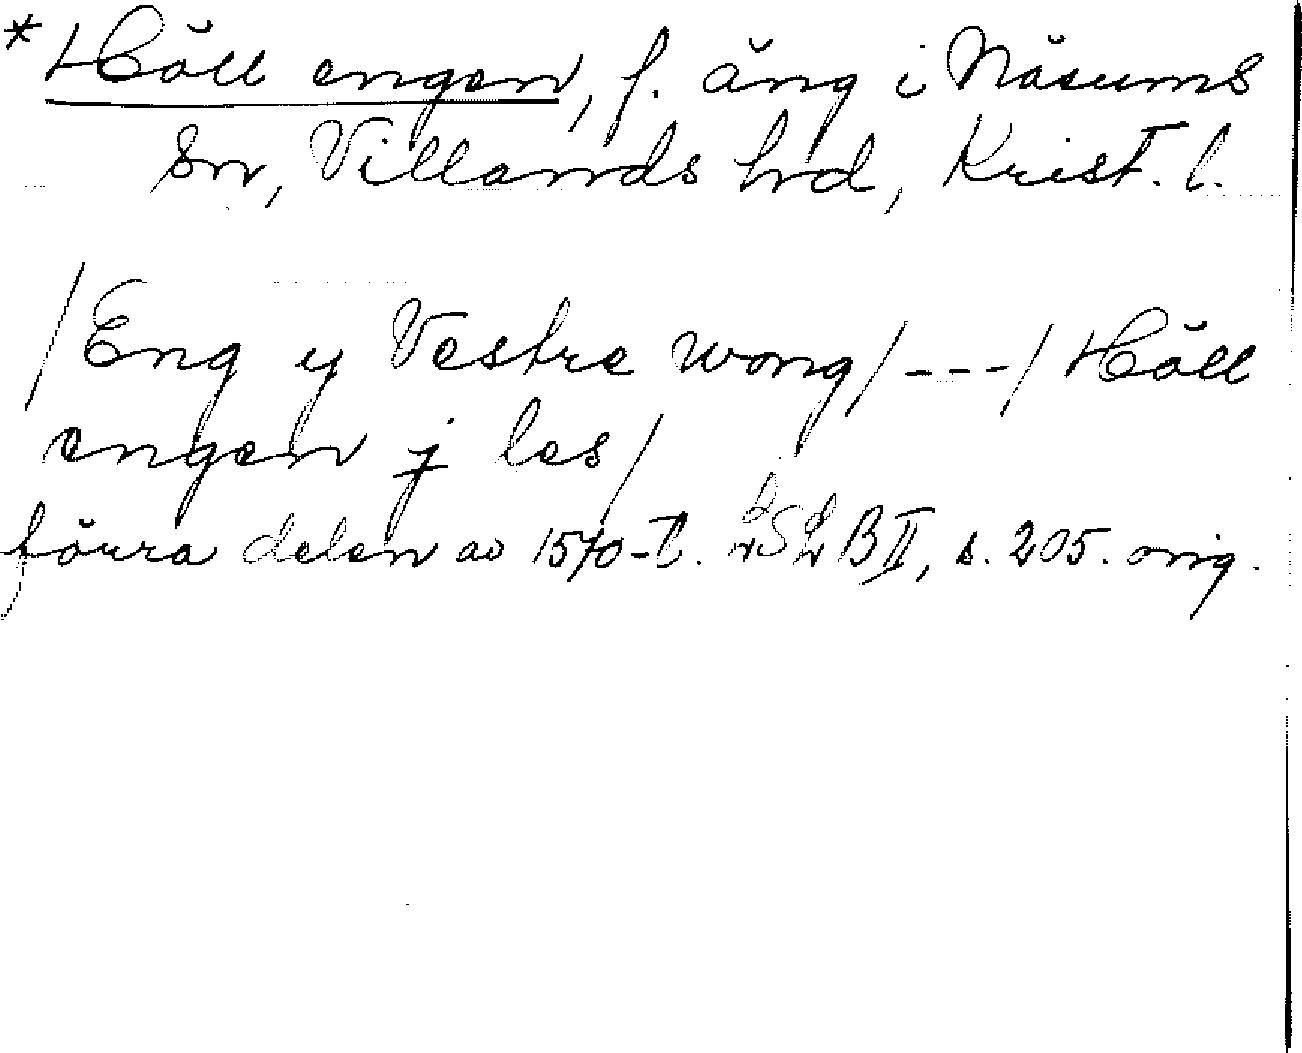 *Höll engen, f. äng i Näsums
sn, Villands hrd, Krist. l.
/Eng y Vestre wong/---/Höll
engen j les/
förra delen av 1570-t. LSLB II, s. 205. orig.